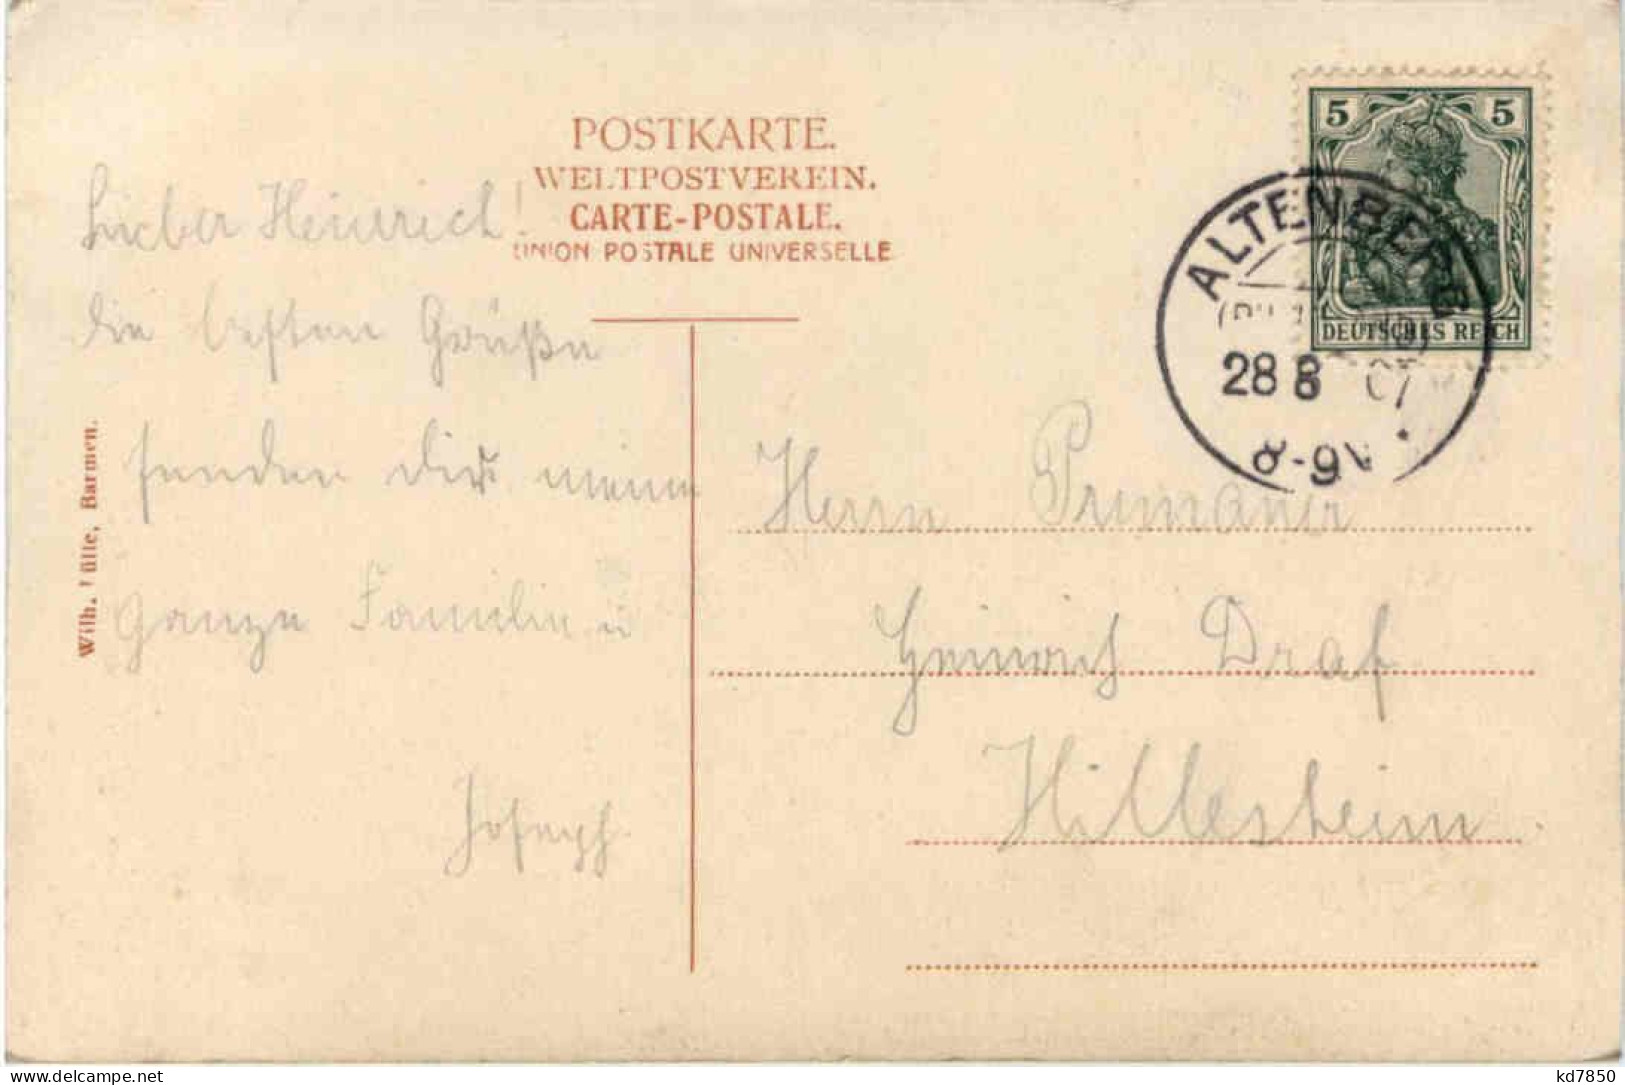 POSTKARTE.
WELTPOSTVEREIN.
CARTE-POSTALE.
UNION POSTALE UNIVERSELLE
Lieber Heinrich!
die besten Grüße
senden dir meine
ganze Familie u
Joseph.
Wilh. Barmen.
5 5
DEUTSCHES REICH
ALTENBERG
28 8 07
8-9V
Herrn Primaner
Heinrich Draf
Hillesheim
kd7850